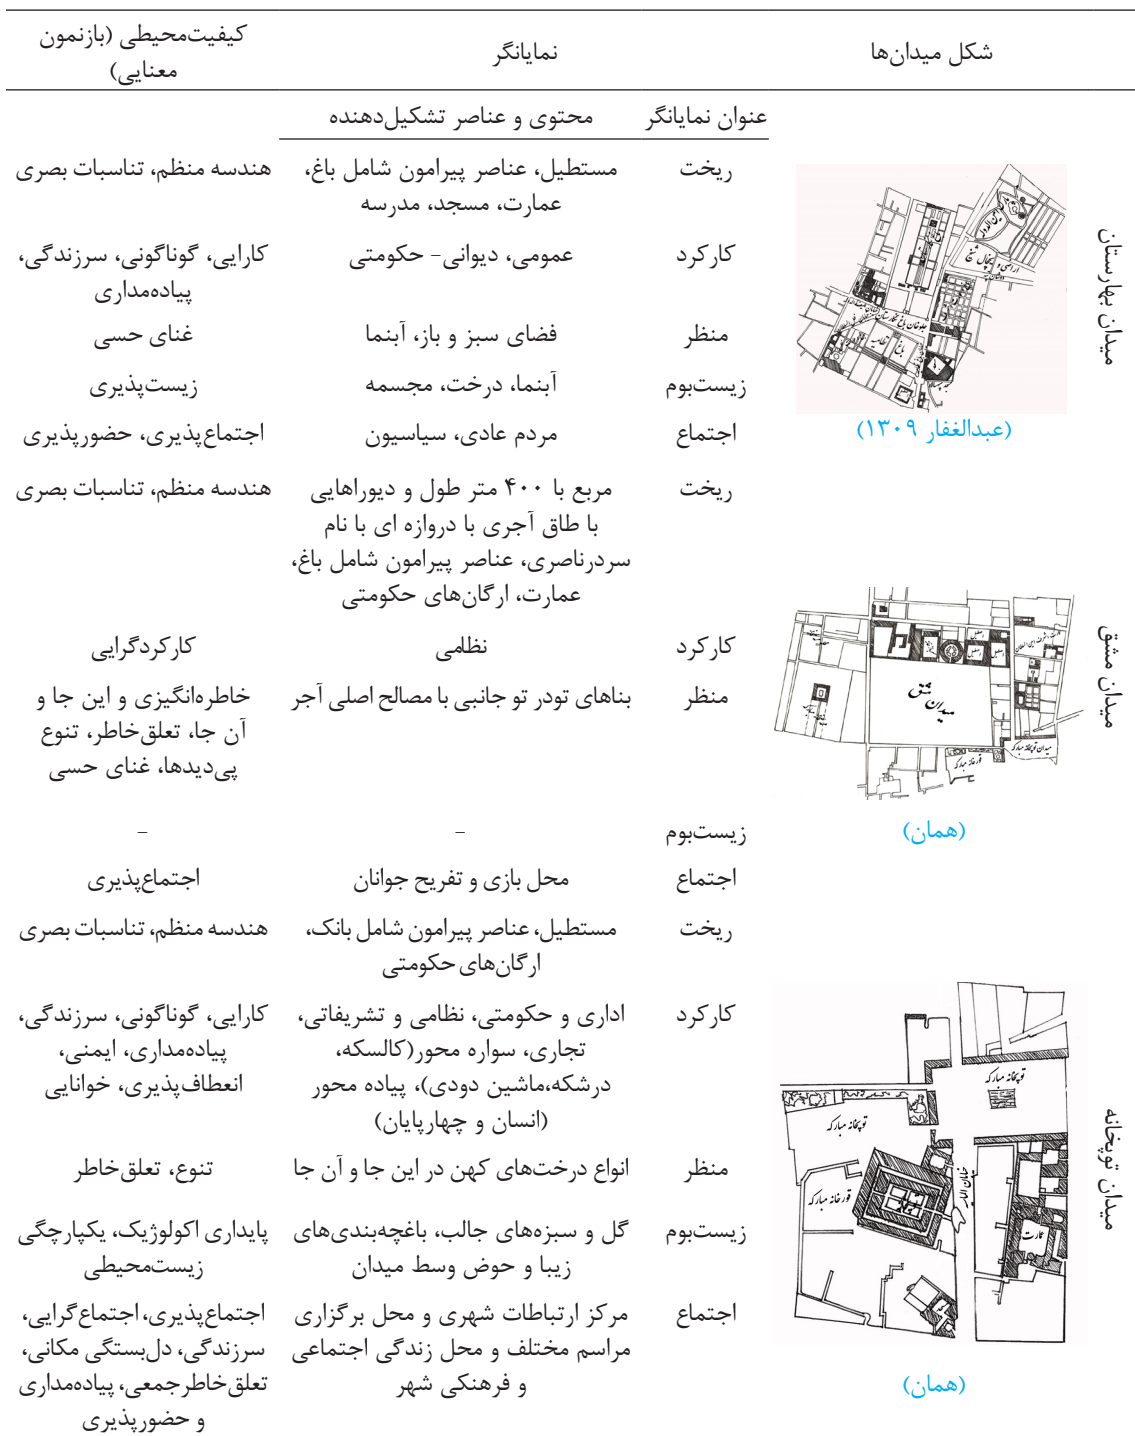 شکل میدان‌ها
نمایانگر
کیفیت‌محیطی (بازنمون
معنایی)
عنوان نمایانگر
محتوی و عناصر تشکیل‌دهنده
میدان بهارستان
(عبدالغفار ۱۳۰۹)
ریخت
مستطیل، عناصر پیرامون شامل باغ،
عمارت، مسجد، مدرسه
هندسه منظم، تناسبات بصری
کارکرد
عمومی، دیوانی- حکومتی
کارایی، گوناگونی، سرزندگی،
پیاده‌مداری
منظر
فضای سبز و باز، آبنما
غنای حسی
زیست‌بوم
آبنما، درخت، مجسمه
زیست‌پذیری
اجتماع
مردم عادی، سیاسیون
اجتماع‌پذیری، حضورپذیری
میدان مشق
میدان مشق
میدان توپخانه مبارکه
قورخانه مبارکه
(همان)
ریخت
مربع با ۴۰۰ متر طول و دیوراهایی
با طاق آجری با دروازه ای با نام
سردرناصری، عناصر پیرامون شامل باغ،
عمارت، ارگان‌های حکومتی
هندسه منظم، تناسبات بصری
کارکرد
نظامی
کارکردگرایی
منظر
بناهای تودر تو جانبی با مصالح اصلی آجر
خاطره‌انگیزی و این جا و
آن جا، تعلق‌خاطر، تنوع
پی‌دیدها، غنای حسی
زیست‌بوم
–
–
اجتماع
محل بازی و تفریح جوانان
اجتماع‌پذیری
میدان توپخانه
توپخانه مبارکه
توپخانه مبارکه
قورخانه مبارکه
عمارت
(همان)
ریخت
مستطیل، عناصر پیرامون شامل بانک،
ارگان‌های حکومتی
هندسه منظم، تناسبات بصری
کارکرد
اداری و حکومتی، نظامی و تشریفاتی،
تجاری، سواره محور(کالسکه،
درشکه،ماشین دودی)، پیاده محور
(انسان و چهارپایان)
کارایی، گوناگونی، سرزندگی،
پیاده‌مداری، ایمنی،
انعطاف‌پذیری، خوانایی
منظر
انواع درخت‌های کهن در این جا و آن جا
تنوع، تعلق‌خاطر
زیست‌بوم
گل و سبزه‌های جالب، باغچه‌بندی‌های
زیبا و حوض وسط میدان
پایداری اکولوژیک، یکپارچگی
زیست‌محیطی
اجتماع
مرکز ارتباطات شهری و محل برگزاری
مراسم مختلف و محل زندگی اجتماعی
و فرهنگی شهر
اجتماع‌پذیری، اجتماع‌گرایی،
سرزندگی، دل‌بستگی مکانی،
تعلق‌خاطرجمعی، پیاده‌مداری
و حضورپذیری